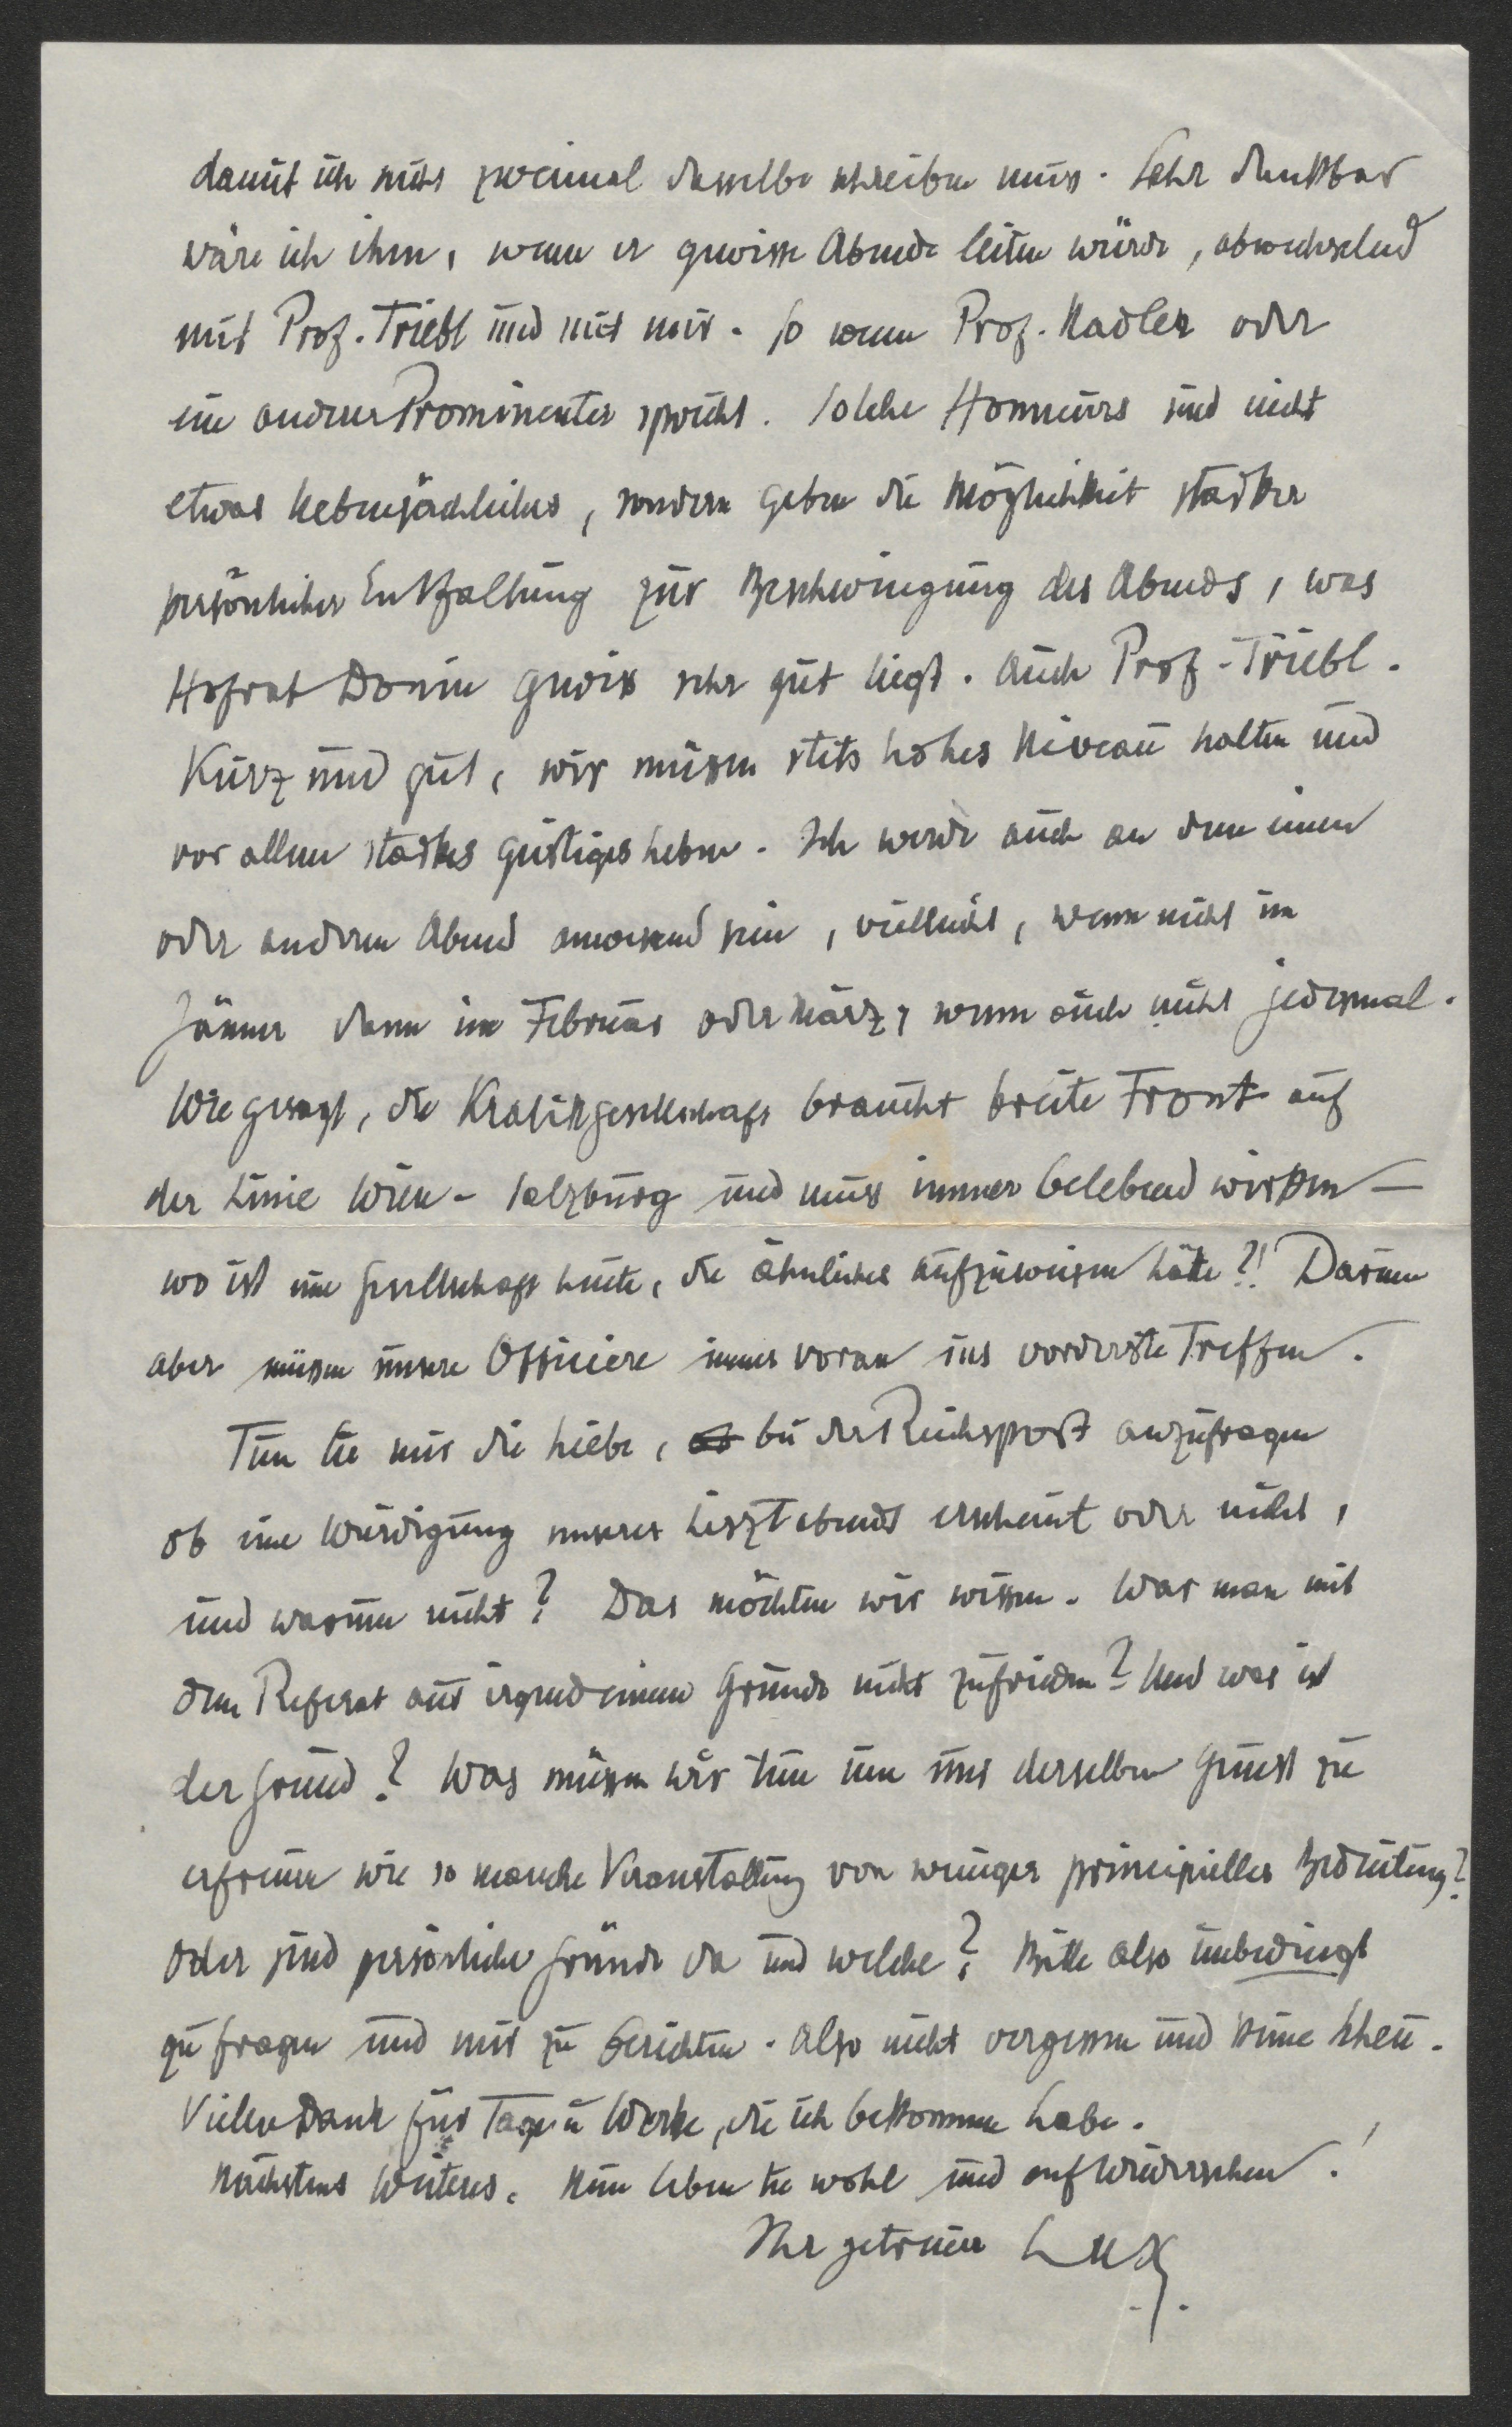 damit ich nicht zweimal dasselbe schreiben muss. Sehr dankbar
wäre ich ihm, wenn er gewisse Abende leiten würde, abwechselnd
mit Prof. Triebl und mit mir. So wenn Prof. Nadler oder
ein andrer Prominenter spricht. Solche Honneurs sind nicht
etwas Nebensächliches, sondern geben die Möglichkeit starker
persönlicher Entfaltung zur Beschwingung des Abends, was
Hofrat Donin gewiss sehr gut liegt. Auch Prof. Triebl.
Kurz und gut, wir müssen stets hohes Niveau halten und
vor allem starkes geistiges Leben. Ich werde auch an dem einen
oder anderen Abend anwesend sein, vielleicht, wenn nicht im
Jänner dann im Februar oder März, wenn auch nicht jedesmal.
Wie gesagt, die Kralikgesellschaft braucht breite Front auf
der Linie Wien - Salzburg und muss immer belebend wirken —
wo ist eine Gesellschaft heute, die ähnliches aufzuweisen hätte?! Darum
aber müssen unsere Officiere immer voran ins vorderste Treffen.
Tun Sie mir die Liebe, bei der Reichspost anzufragen
ob eine Würdigung unseres Lisztabends erscheint oder nicht,
und warum nicht? Das möchten wir wissen. War man mit
dem Referat aus irgendeinem Grunde nicht zufrieden? Und was ist
der Grund? Was müssen wir tun um uns derselben Gunst zu
erfreuen wie so manche Veranstaltung von weniger principieller Bedeutung?
Oder sind persönliche Gründe da und welche? Bitte also unbedingt
zu fragen und mir zu berichten. Also nicht vergessen und keine Scheu.
Vielen Dank für Tage u Werke, die ich bekommen habe.
Nächstens Weiteres. Nun leben Sie wohl und auf Wiedersehen!
Ihr getreuer Lux